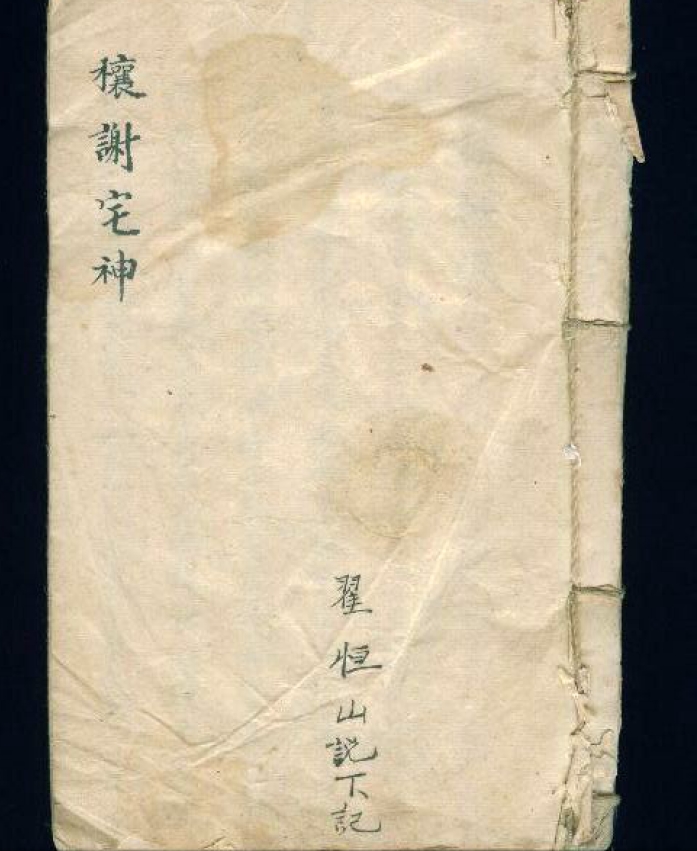 穰謝宅神
翟恒山説下記